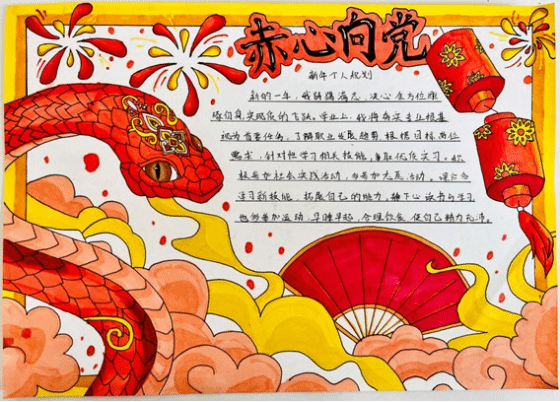 赤心向党
新年个人规划
新的一年，我踌躇满志，决心全方位雕
琢自身实现质的飞跃。学业上，我将夯实专业根基
视为首要任务，了解职业发展趋势，根据目标岗位
需求，针对性学习相关技能，争取优质实习。积
极参加社会实践活动，参加志愿活动。课余
学习新技能，拓展自己的能力，静下心读书与学习
也多参加运动，早睡早起，合理饮食，使自己精力充沛。